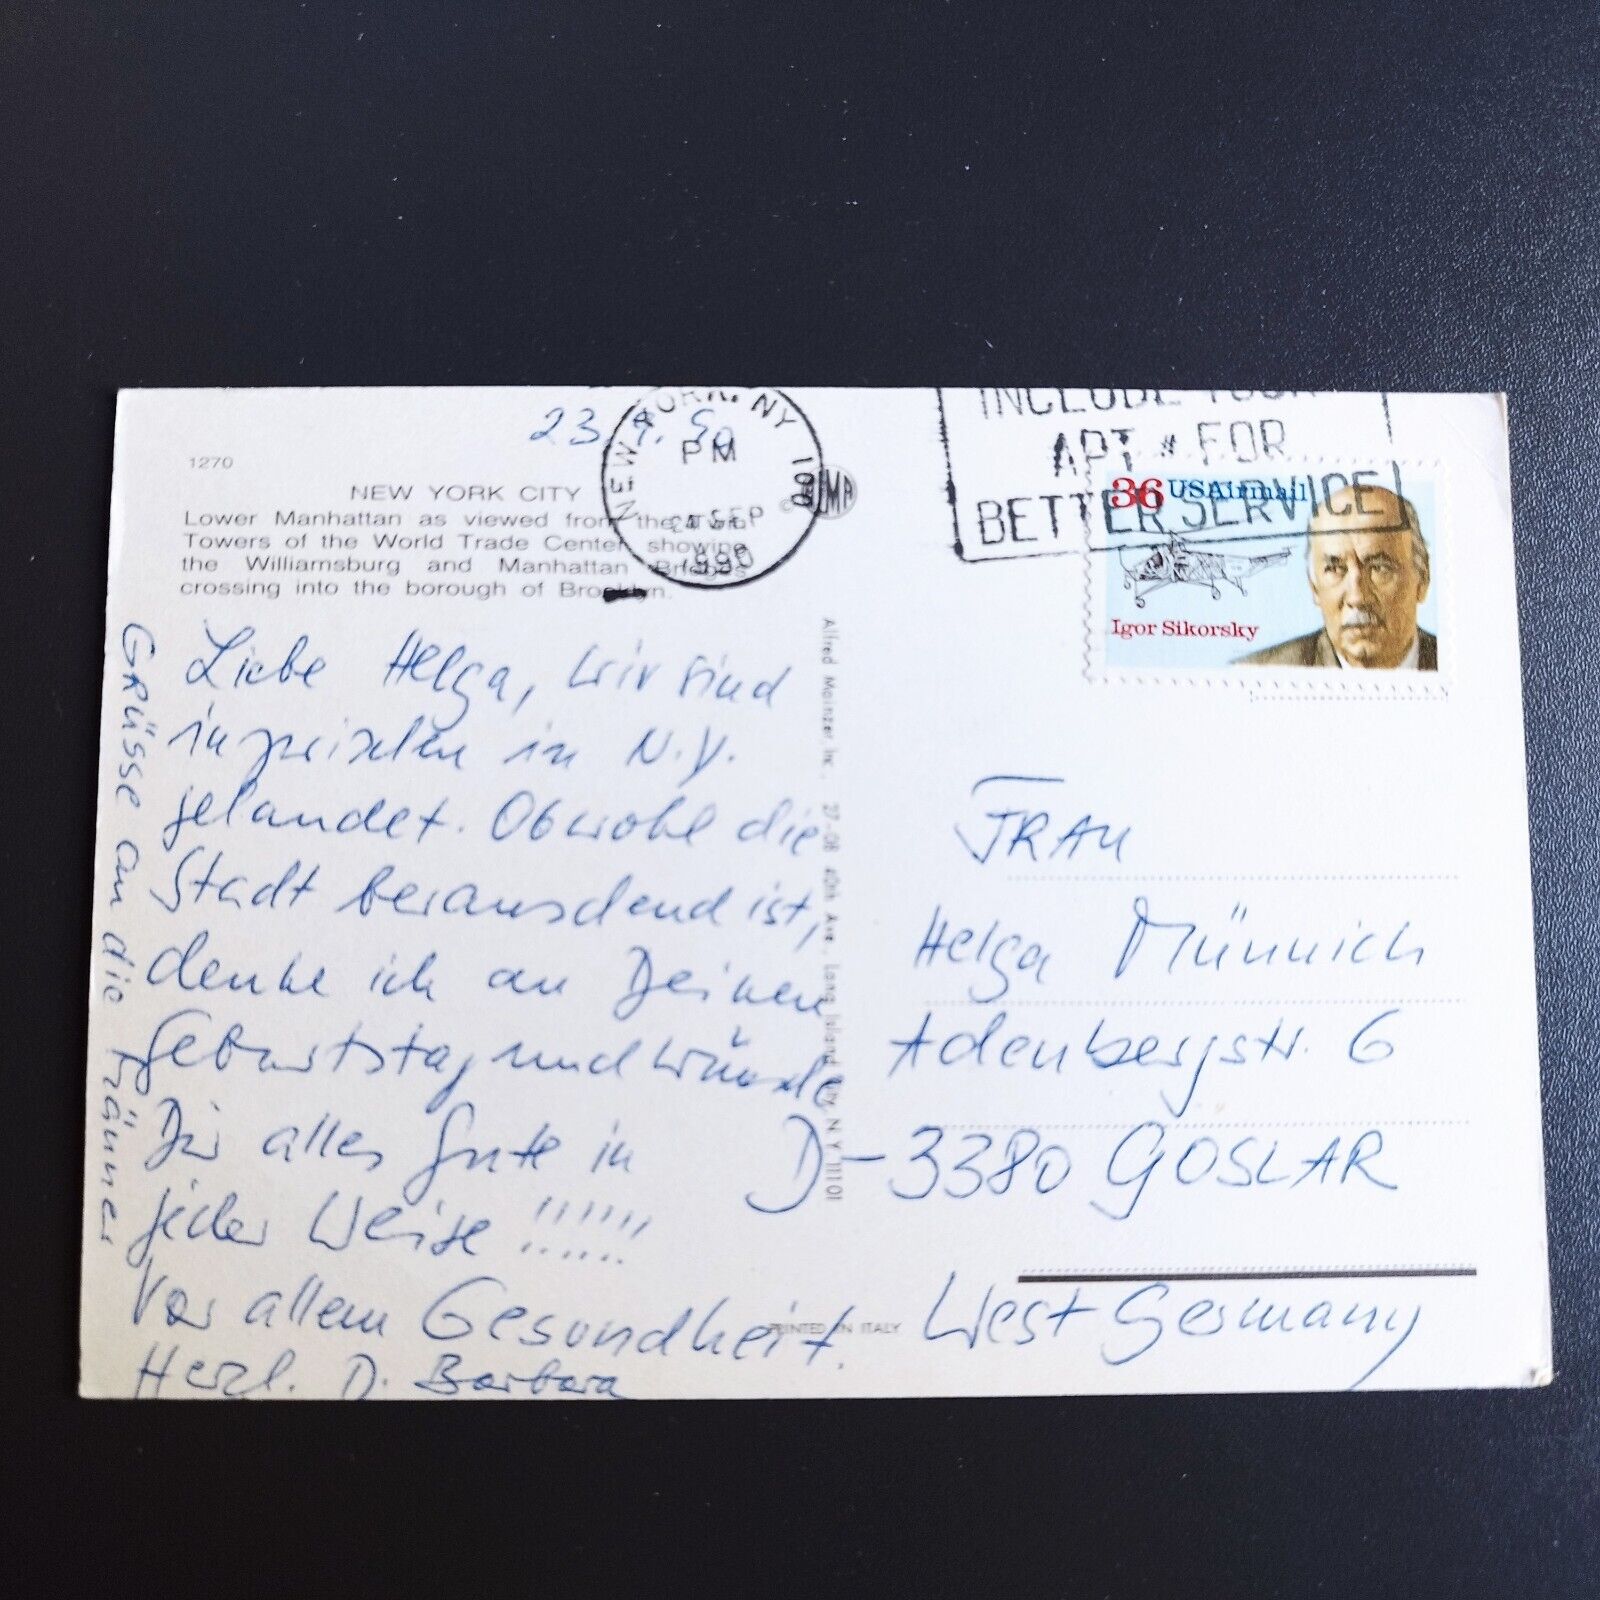 23.9.90
1270
NEW YORK CITY
Lower Manhattan as viewed from the Twin
Towers of the World Trade Center, showing
the Williamsburg and Manhattan Bridges
crossing into the borough of Brooklyn.
NEW YORK, NY 100
PM
24 SEP
1990
APT # FOR
BETTER SERVICE
36 USAirmail
Igor Sikorsky
Liebe Helga, wir sind
inzwischen in N.Y.
gelandet. Obwohl die
Stadt berauschend ist,
denke ich an Deinen
Geburtstag und wünsche
Dir alles Gute in
jeder Weise !!!!!!
Vor allem Gesundheit.
Herzl. D. Barbara
GRÜSSE an die Männer
Alfred Mainzer, Inc., 27-08 40th Ave., Long Island City, N.Y. 11101
PRINTED IN ITALY
FRAU
Helga Münnich
Adenbergstr. 6
D-3380 GOSLAR
West Germany